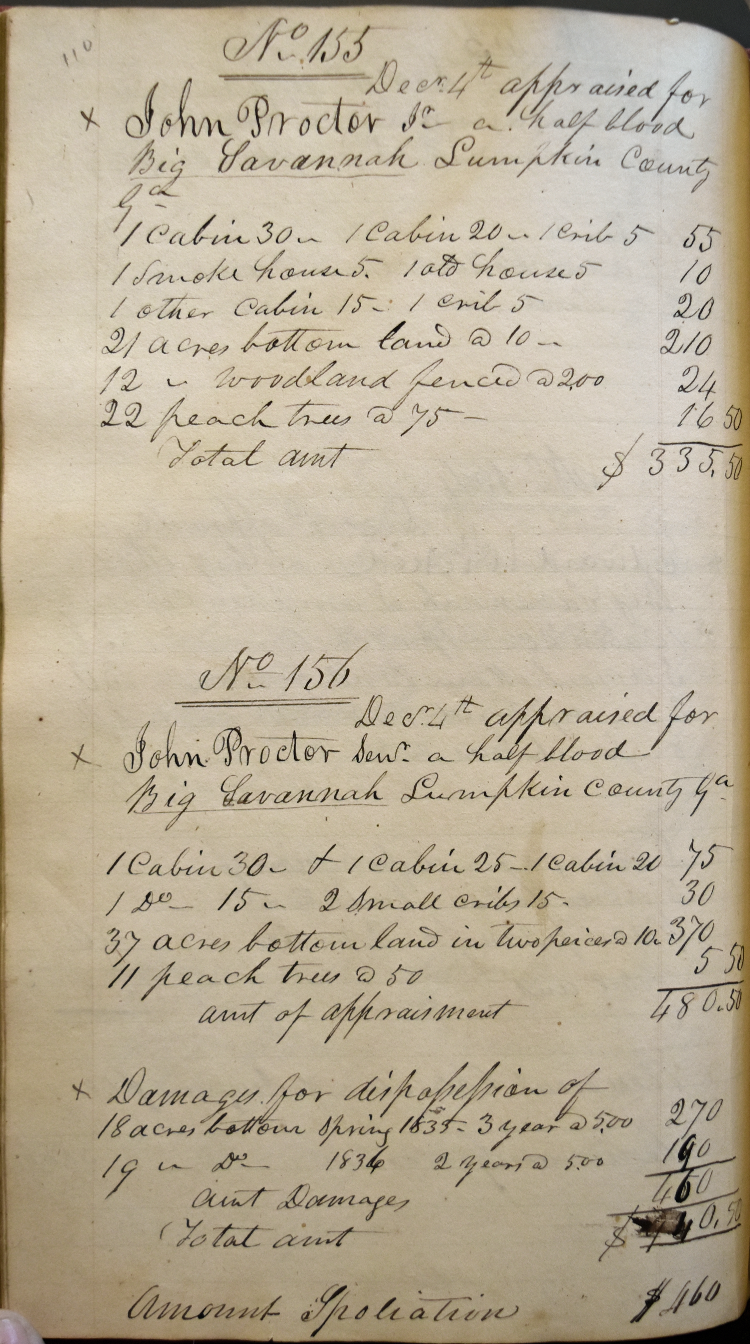 110
No 155
Decr 4th appraised for
x John Proctor Jr a half blood
Big Savannah Lumpkin County
Ga
1 Cabin 30 - 1 Cabin 20 - 1 Crib 5 55
1 Smoke house 5. 1 old house 5 10
1 other Cabin 15 - 1 crib 5 20
21 acres bottom land @ 10 - 210
12 " woodland fenced @ 2.00 24
22 peach trees @ 75 - 16 50
Total amt $ 335.50
No 156
Decr 4th appraised for
x John Proctor Senr a half blood
Big Savannah Lumpkin County Ga
1 Cabin 30 - & 1 Cabin 25 - 1 Cabin 20 75
1 Do - 15 - 2 Small cribs 15 - 30
37 acres bottom land in two peices @ 10 - 370
11 peach trees @ 50 5 50
amt of appraisment 480.50
x Damages for dispossession of
18 acres bottom Spring 1835 - 3 year @ 5.00 270
19 " Do - 1836 2 years @ 5.00 190
amt Damages 460
Total amt $ 40.50
Amount Spoliation $ 460